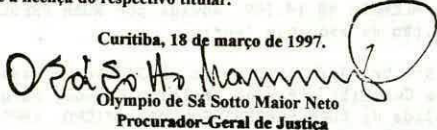 a licença do respectivo titular.
Curitiba, 18 de março de 1997.
Olympio de Sá Sotto Maior Neto
Procurador-Geral de Justiça